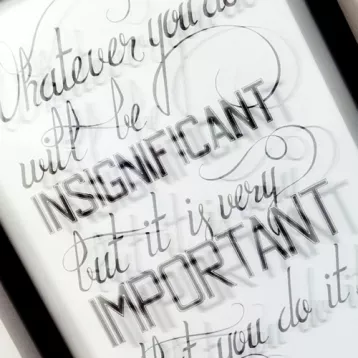 Whatever you do
will be
INSIGNIFICANT
but it is very
IMPORTANT
that you do it